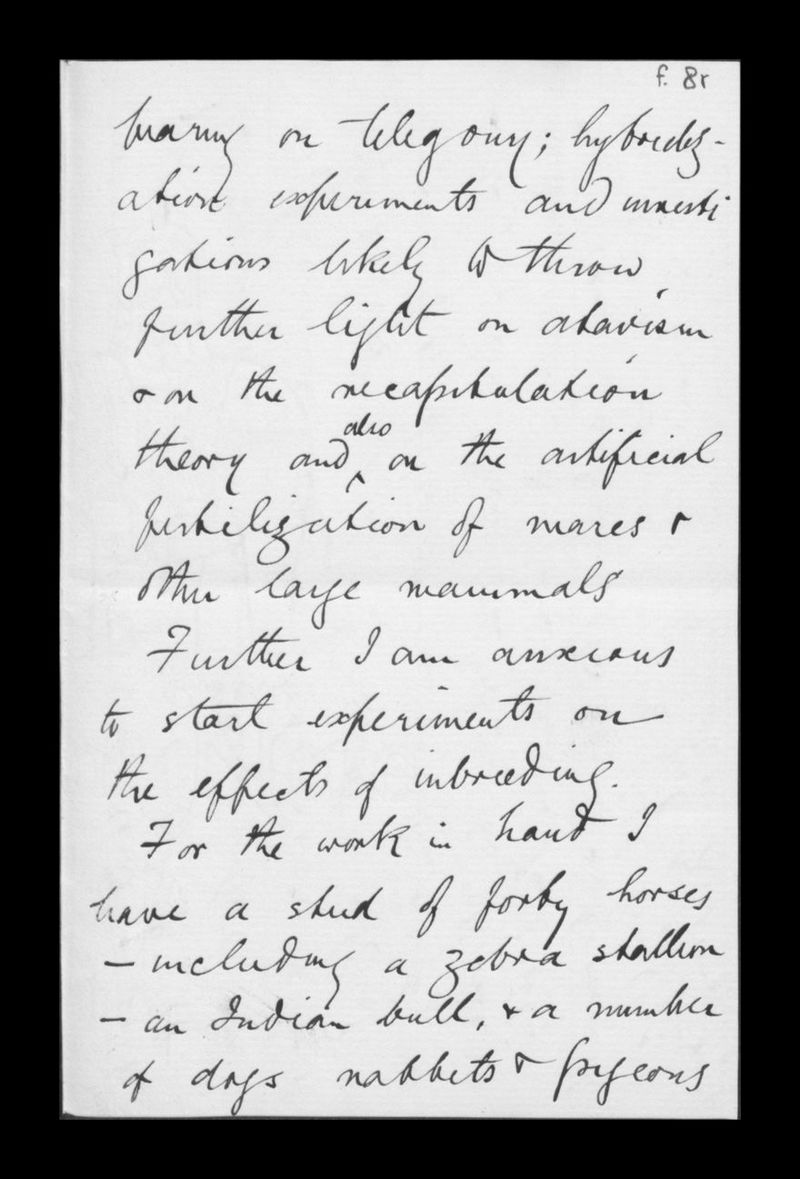 f. 8r
bearing on telegony; hybridiz-
ation experiments and investi
gations likely to throw
further light on atavism
& on the recapitulation
also
theory and on the artificial
fertilization of mares &
other large mammals
Further I am anxious
to start experiments on
the effects of inbreeding.
For the work in hand I
have a stud of forty horses
- including a zebra stallion
- an Indian bull, & a number
of dogs rabbits & pigeons